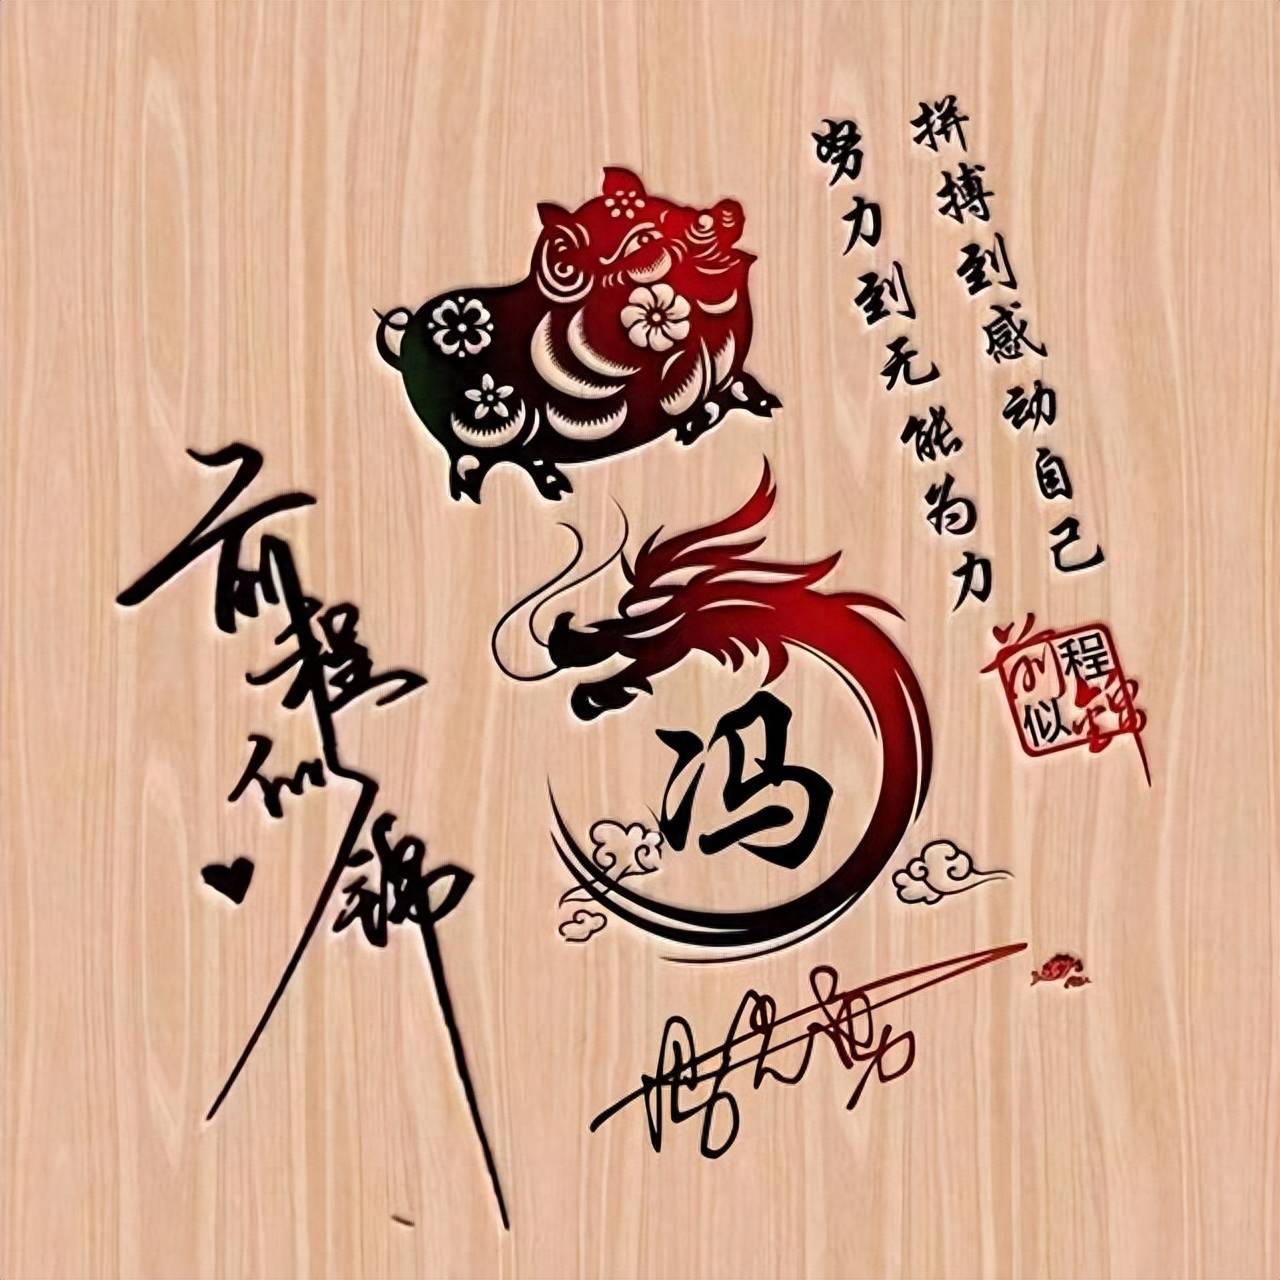 拼搏到感动自己
努力到无能为力
前程似锦
前程似锦
冯